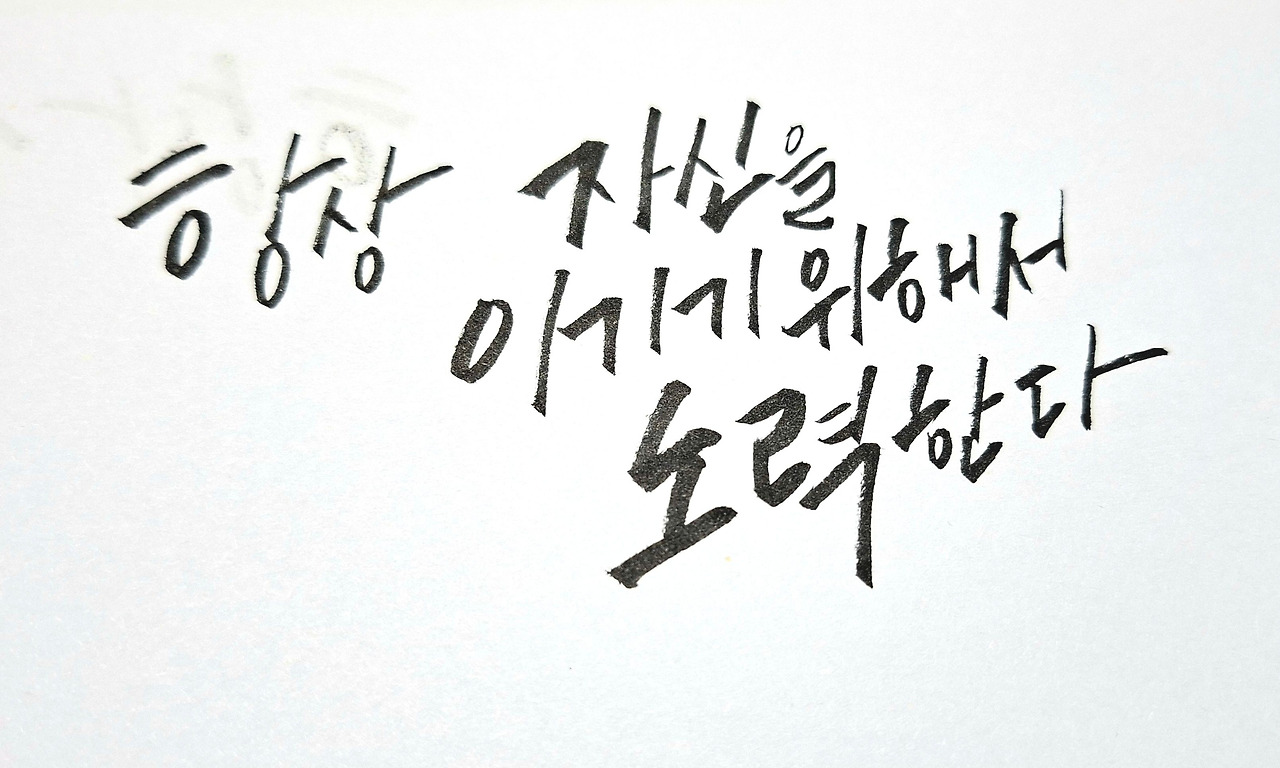 항상 자신을
이기기 위해서
노력한다